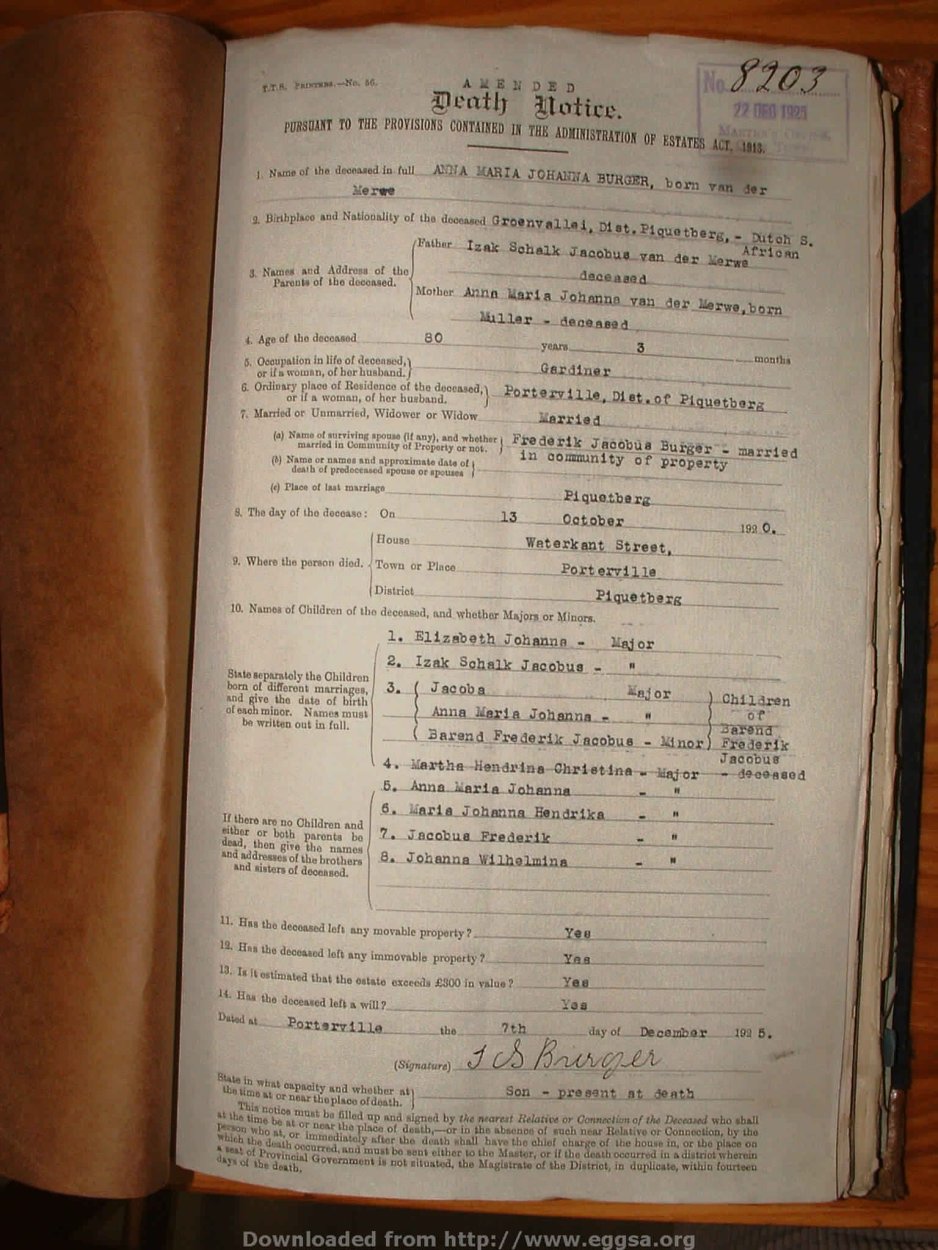 T.T.S. PRINTERS.—No. 56.
AMENDED
Death Notice.
No. 8203
22 DEC 1925
PURSUANT TO THE PROVISIONS CONTAINED IN THE ADMINISTRATION OF ESTATES ACT, 1913.
1. Name of the deceased in full ANNA MARIA JOHANNA BURGER, born van der
Merwe
2. Birthplace and Nationality of the deceased Groenvallei, Dist. Piquetberg, - Dutch S.
African
3. Names and Address of the Parents of the deceased.
Father Izak Schalk Jacobus van der Merwe
deceased
Mother Anna Maria Johanna van der Merwe, born
Muller - deceased
4. Age of the deceased 80 years 3 months
5. Occupation in life of deceased,
or if a woman, of her husband. Gardiner
6. Ordinary place of Residence of the deceased,
or if a woman, of her husband. Porterville, Dist. of Piquetberg
7. Married or Unmarried, Widower or Widow Married
(a) Name of surviving spouse (if any), and whether
married in Community of Property or not. Frederik Jacobus Burger - married
in community of property
(b) Name or names and approximate date of
death of predeceased spouse or spouses
(c) Place of last marriage Piquetberg
8. The day of the decease: On 13 October 1920.
9. Where the person died.
House Waterkant Street,
Town or Place Porterville
District Piquetberg
10. Names of Children of the deceased, and whether Majors or Minors.
State separately the Children
born of different marriages,
and give the date of birth
of each minor. Names must
be written out in full.
1. Elizabeth Johanna - Major
2. Izak Schalk Jacobus - "
3. ( Jacoba Major ) Children
( Anna Maria Johanna - " ) of
Barend
( Barend Frederik Jacobus - Minor) Frederik
Jacobus
4. Martha Hendrina Christina - Major - deceased
5. Anna Maria Johanna - "
6. Maria Johanna Hendrika - "
7. Jacobus Frederik - "
8. Johanna Wilhelmina - "
If there are no Children and
either or both parents be
dead, then give the names
and addresses of the brothers
and sisters of deceased.
11. Has the deceased left any movable property? Yes
12. Has the deceased left any immovable property? Yes
13. Is it estimated that the estate exceeds £300 in value? Yes
14. Has the deceased left a will? Yes
Dated at Porterville the 7th day of December 1925.
(Signature) Burger
State in what capacity and whether at
the time at or near the place of death. Son - present at death
This notice must be filled up and signed by the nearest Relative or Connection of the Deceased who shall
at the time be at or near the place of death,—or in the absence of such near Relative or Connection, by the
person who at, or immediately after the death shall have the chief charge of the house in, or the place on
which the death occurred, and must be sent either to the Master, or if the death occurred in a district wherein
a seat of Provincial Government is not situated, the Magistrate of the District, in duplicate, within fourteen
days of the death.
Downloaded from http://www.eggsa.org